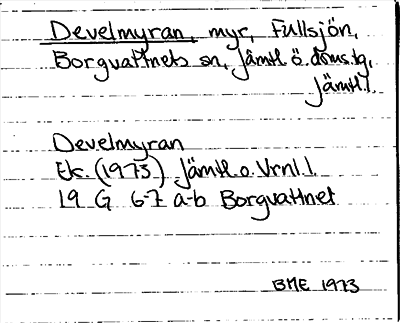 Develmyran, myr, Fullsjön,
Borgvattnets sn, Jämtl. ö. dms. tg,
Jämtl. l.
Develmyran
Ek. (1973) Jämtl. o. Vrnl. l.
19 G 6-7 a-b Borgvattnet
BME 1973